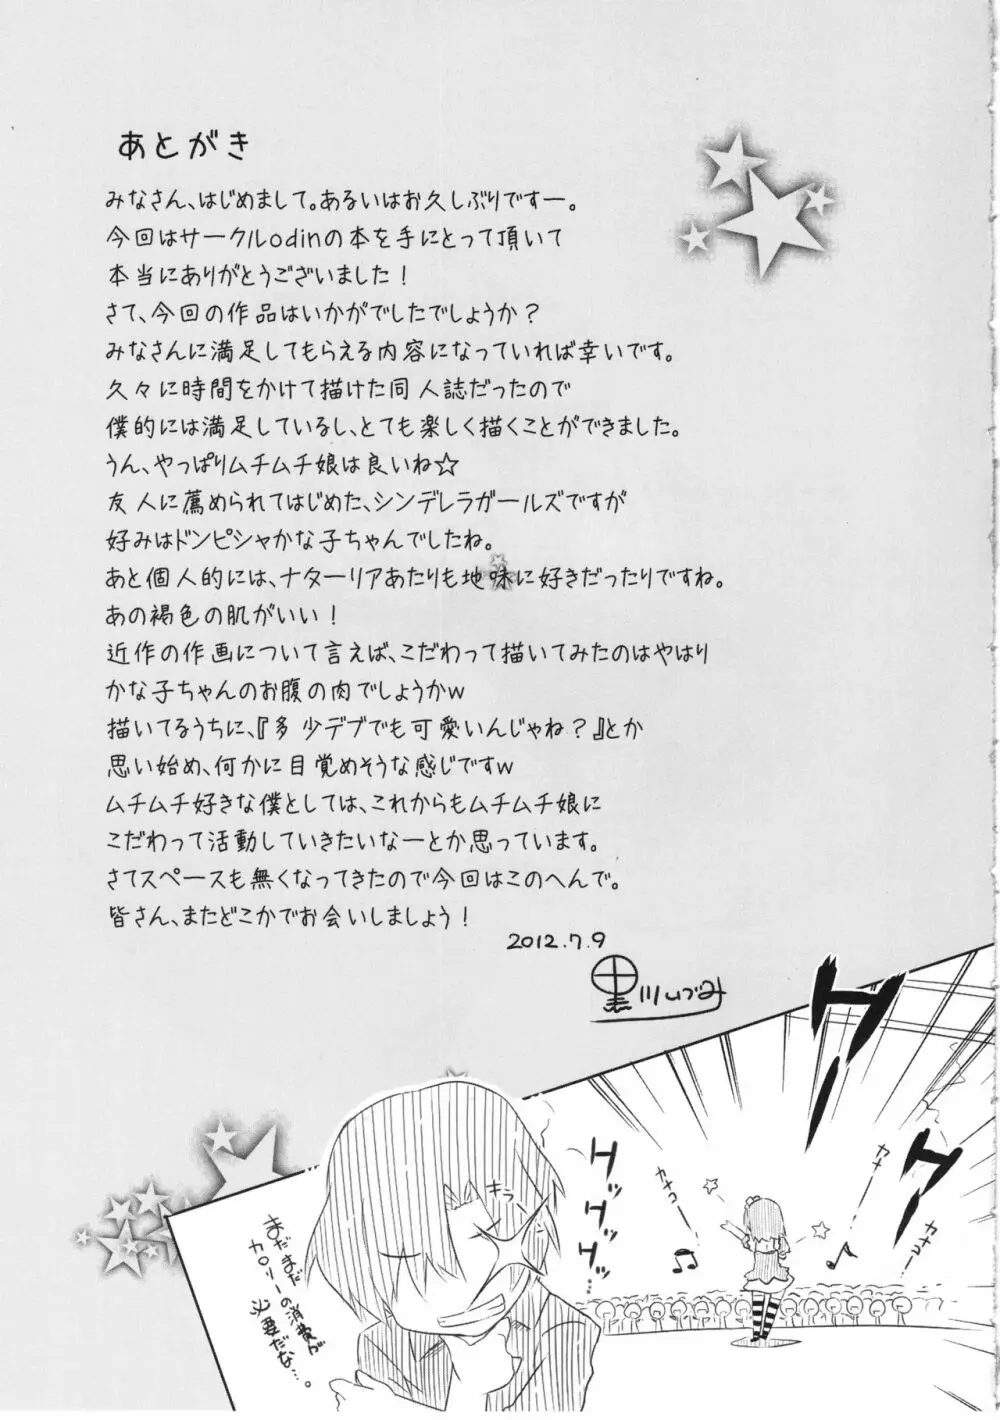 あとがき
みなさん、はじめまして。あるいはお久しぶりですー。
今回はサークルodinの本を手にとって頂いて
本当にありがとうございました！
さて、今回の作品はいかがでしたでしょうか？
みなさんに満足してもらえる内容になっていれば幸いです。
久々に時間をかけて描けた同人誌だったので
僕的には満足しているし、とても楽しく描くことができました。
うん、やっぱりムチムチ娘は良いね☆
友人に薦められてはじめた、シンデレラガールズですが
好みはドンピシャかな子ちゃんでしたね。
あと個人的には、ナターリアあたりも地味に好きだったりですね。
あの褐色の肌がいい！
近作の作画について言えば、こだわって描いてみたのはやはり
かな子ちゃんのお腹の肉でしょうかw
描いてるうちに、『多少デブでも可愛いんじゃね？』とか
思い始め、何かに目覚めそうな感じですw
ムチムチ好きな僕としては、これからもムチムチ娘に
こだわって活動していきたいなーとか思っています。
さてスペースも無くなってきたので今回はこのへんで。
皆さん、またどこかでお会いしましょう！
2012.7.9
黒川いづみ
ワー
ワー
ワー…
ワー…
カナコー
カナー
カナコー
キラ
まだまだ
カロリーの消費が
必要だな…。